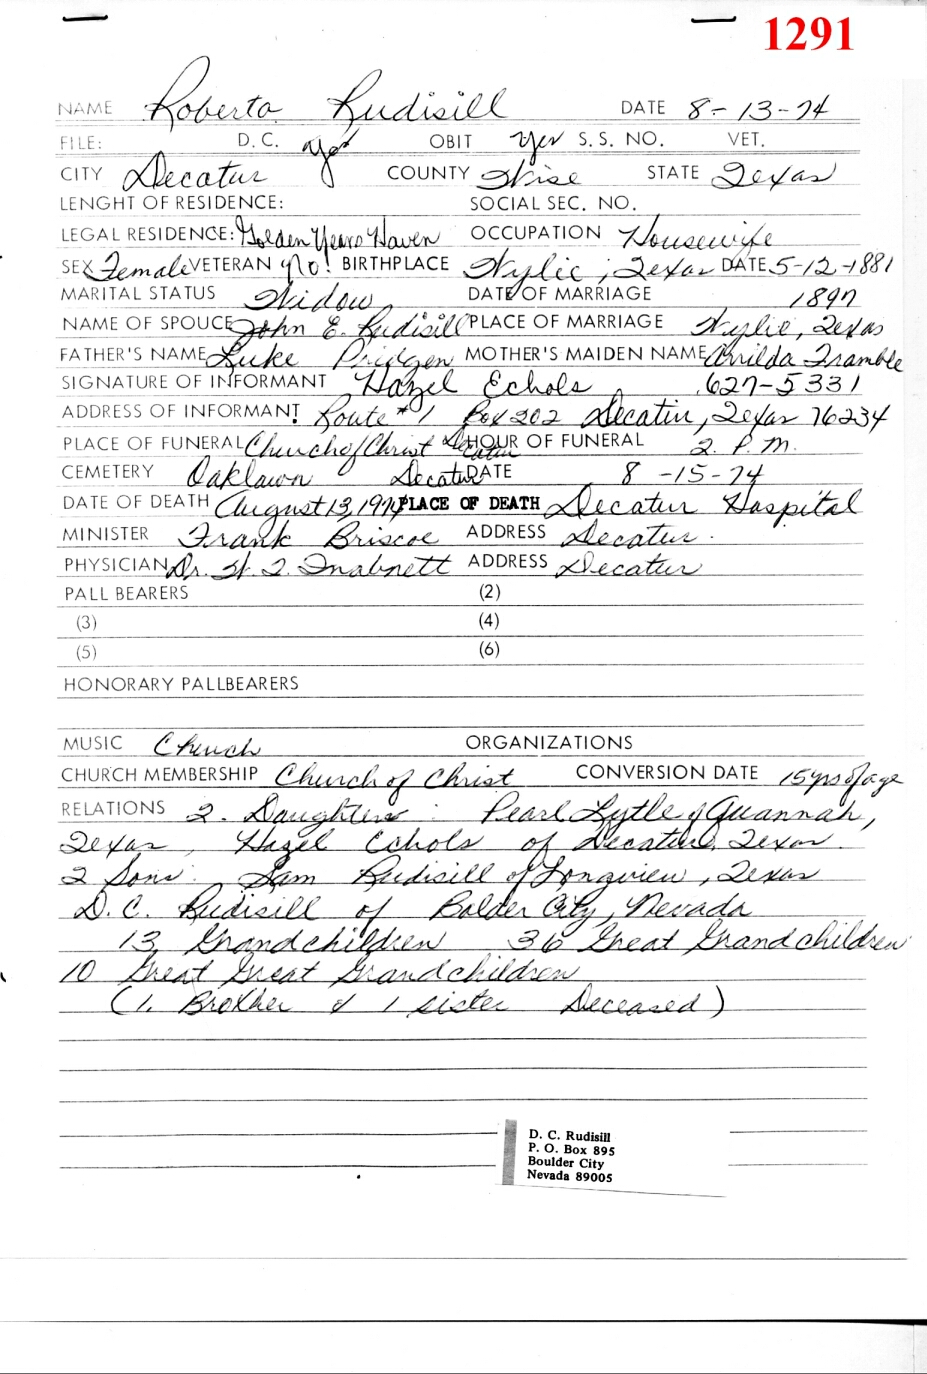 1291
NAME Roberta Rudisill DATE 8-13-74
FILE: D. C. yes OBIT yes S. S. NO. VET.
CITY Decatur COUNTY Wise STATE Texas
LENGHT OF RESIDENCE: SOCIAL SEC. NO.
LEGAL RESIDENCE: Golden Years Haven OCCUPATION Housewife
SEX Female VETERAN no! BIRTHPLACE Wylie, Texas DATE 5-12-1881
MARITAL STATUS Widow DATE OF MARRIAGE 1897
NAME OF SPOUCE John E. Rudisill PLACE OF MARRIAGE Wylie, Texas
FATHER'S NAME Luke Pridgen MOTHER'S MAIDEN NAME Arrilda Tramble
SIGNATURE OF INFORMANT Hazel Echols 627-5331
ADDRESS OF INFORMANT Route #1 Box 202 Decatur, Texas 76234
PLACE OF FUNERAL Church of Christ Decatur HOUR OF FUNERAL 2. P.M.
CEMETERY Oaklawn Decatur DATE 8-15-74
DATE OF DEATH August 13, 1974 PLACE OF DEATH Decatur Hospital
MINISTER Frank Briscoe ADDRESS Decatur.
PHYSICIAN Dr. W. T. Inabnett ADDRESS Decatur
PALL BEARERS (2)
(3) (4)
(5) (6)
HONORARY PALLBEARERS
MUSIC Church ORGANIZATIONS
CHURCH MEMBERSHIP Church of Christ CONVERSION DATE 15 yrs of age
RELATIONS 2. Daughters: Pearl Lytle of Quannah,
Texas, Hazel Echols of Decatur, Texas.
2 Sons. Sam Rudisill of Longview, Texas
D. C. Rudisill of Bolder City, Nevada
13 Grandchildren 36 Great Grandchildren
10 Great Great Grandchildren
(1. Brother & 1 sister Deceased)
D. C. Rudisill
P. O. Box 895
Boulder City
Nevada 89005